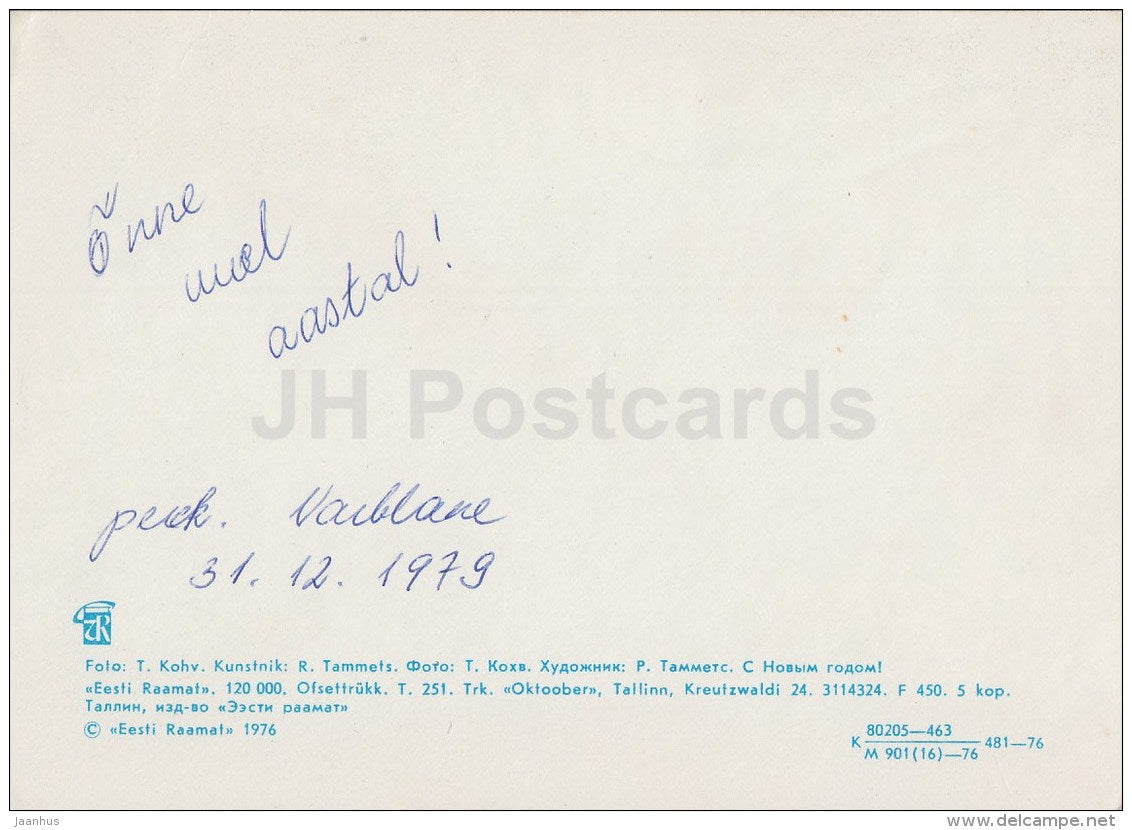 Õnne
uuel
aastal!
JH Postcards
perek. Varblane
31. 12. 1979
ER
Foto: T. Kohv. Kunstnik: R. Tammets. Фото: Т. Кохв. Художник: Р. Тамметс. С Новым годом!
«Eesti Raamat». 120 000. Ofsettrükk. T. 251. Trk. «Oktoober», Tallinn, Kreutzwaldi 24. 3114324. F 450. 5 kop.
Таллин, изд-во «Ээсти раамат»
© «Eesti Raamat» 1976
К 80205—463 481—76
М 901(16)—76
Jaanhus
www.delcampe.net